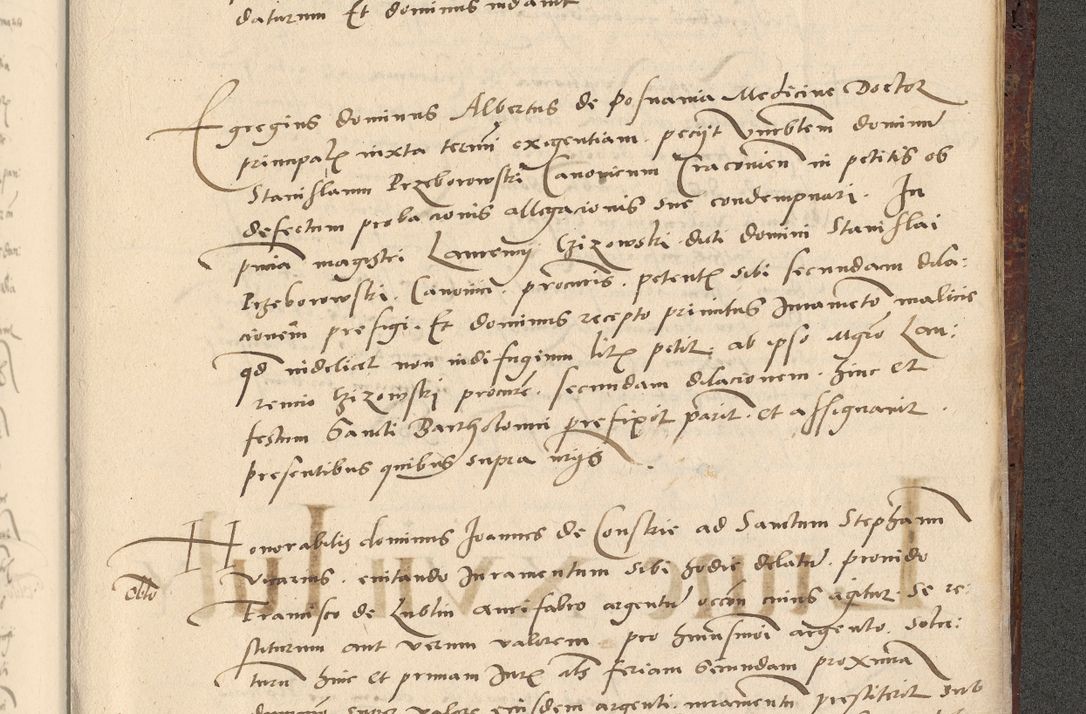 daturum Et dominus mandavit
Egregius dominus Albertus de posnania Medicine Doctor
principalis iuxta termini exigentiam peciit Venerabilem dominum
Stanislaum Przeborowski Canonicum Cracoviensem in petitis ob
defectum probacionis allegacionis sue condempnari. In
presencia magistri Laurencii Czizowski dicti domini Stanislai
Przeborowski. Canonici. procuratoris. petentis sibi secundam dila:
cionem prefigi. Et dominus recepto primitus Iuramento malicie
quod videlicet non in diffugium litis petit: ab ipso Magistro Lau:
rencio Czizowski procuratore. secundam dilacionem. hinc et
festum Sancti Bartholomei prefixit parti. et assignavit.
presentibus quibus supra
Honorabilis dominus Ioannes de ad Sanctum Stephanum
Vicarius. evitando Iuramentum sibi hodie delatum. provido
Francisco de Lublin aurifabro argentum cuius agitur. se re:
stiturum aut verum valorem pro huiusmodi argento. solu:
turum hinc et primam Iuris ante feriam Secundam proxima
super valore eiusdem argenti. iuramentum prestiterit sub